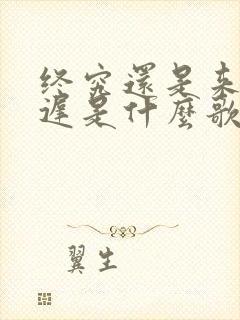 终究還是来
遲是什麼歌
翼生